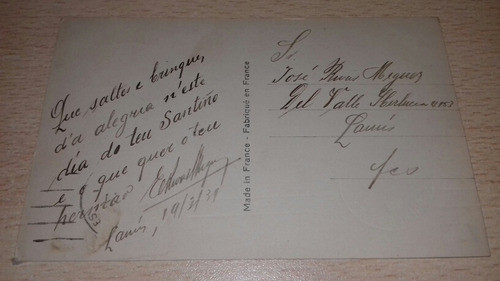 Que saltes e brinques
d'a alegria n'este
dia do teu Santiño
e o que quer ôteu
hermzao
Lanús, 19/2/31
Made in France - Fabriqué en France
Sr
José Rivas Miguez
Del Valle Iberlucea
Lanús